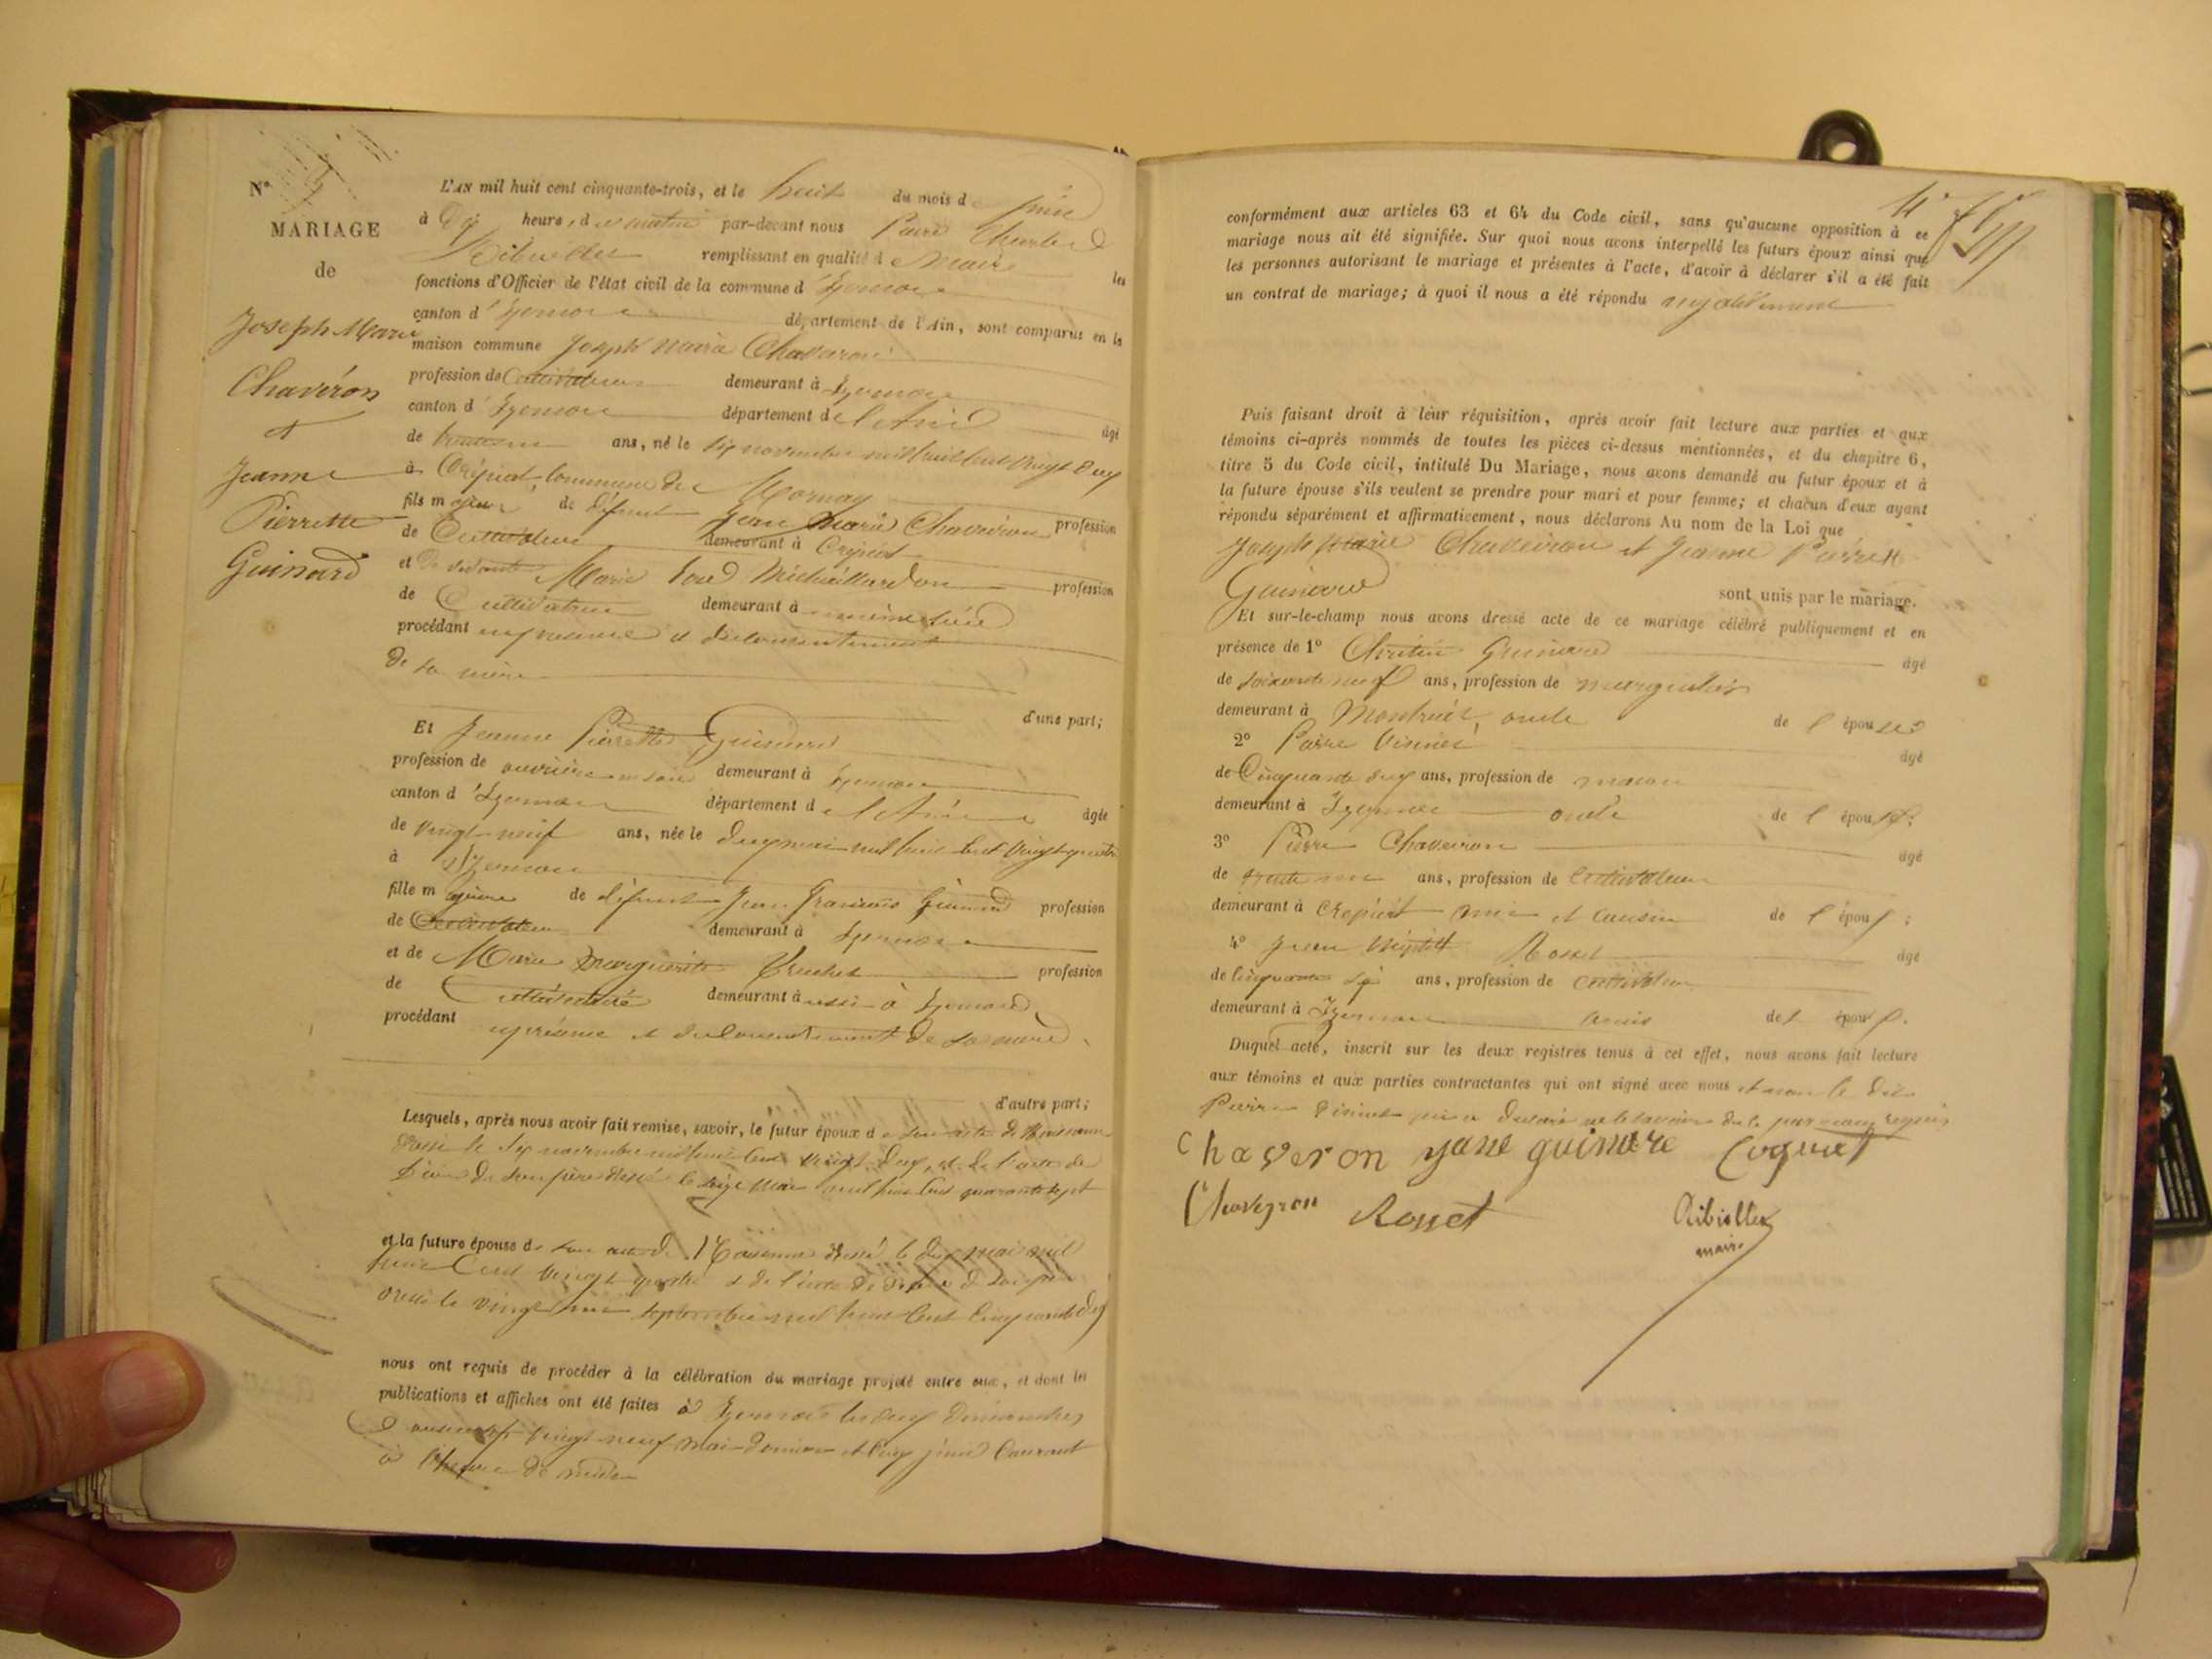 N° 7
MARIAGE
de
Joseph Marie
Chaveron
et
Jeanne
Pierrette
Guinard
L'AN mil huit cent cinquante-trois, et le huit du mois de juin
à dix heures, du matin par-devant nous Pierre Charles
Ribiollet remplissant en qualité de Maire les
fonctions d'Officier de l'état civil de la commune d'Izernore
canton d'Izernore département de l'Ain, sont comparus en la
maison commune Joseph Marie Chaveron
profession de Cultivateur demeurant à Izernore
canton d'Izernore département de l'Ain âgé
de trente un ans, né le six novembre mil huit cent vingt deux
à Crépiat, commune de Mornay
fils majeur de défunt Jean Marie Chaveiron profession
de Cultivateur demeurant à Crépiat
et de vivante Marie Michaillardon profession
de Cultivatrice demeurant à même lieu
procédant en présence et du consentement
de sa mère
d'une part;
Et Jeanne Pierrette Guinard
profession de ouvrière en soie demeurant à Izernore
canton d'Izernore département de l'Ain âgée
de vingt neuf ans, née le deux mai mil huit cent vingt quatre
à Izernore
fille majeure de défunt Jean François Guinard profession
de Cultivateur demeurant à Izernore
et de Marie Marguerite profession
de Cultivatrice demeurant aussi à Izernore
procédant en présence et du consentement de sa mère
d'autre part;
Lesquels, après nous avoir fait remise, savoir, le futur époux de son acte de Naissance
dressé le six novembre mil huit cent vingt deux, et de l'acte de
décès de son père dressé le seize mai mil huit cent quarante sept
et la future épouse de son acte de Naissance dressé le deux mai mil
huit Cent vingt quatre et de l'acte de décès de son père
dressé le vingt un septembre mil huit Cent Cinquante deux
nous ont requis de procéder à la célébration du mariage projeté entre eux, et dont les
publications et affiches ont été faites à Izernore les deux dimanches
vingt neuf mai dernier et cinq juin Courant
à l'heure de midi
4
conformément aux articles 63 et 64 du Code civil, sans qu'aucune opposition à ce
mariage nous ait été signifiée. Sur quoi nous avons interpellé les futurs époux ainsi que
les personnes autorisant le mariage et présentes à l'acte, d'avoir à déclarer s'il a été fait
un contrat de mariage; à quoi il nous a été répondu négativement
Puis faisant droit à leur réquisition, après avoir fait lecture aux parties et aux
témoins ci-après nommés de toutes les pièces ci-dessus mentionnées, et du chapitre 6,
titre 5 du Code civil, intitulé Du Mariage, nous avons demandé au futur époux et à
la future épouse s'ils veulent se prendre pour mari et pour femme; et chacun d'eux ayant
répondu séparément et affirmativement, nous déclarons Au nom de la Loi que
Joseph Marie Chaveiron et Jeanne Pierrette
Guinard sont unis par le mariage.
Et sur-le-champ nous avons dressé acte de ce mariage célébré publiquement et en
présence de 1° Guinard âgé
de soixante neuf ans, profession de
demeurant à Montréal, oncle de l'épouse
2° Pierre âgé
de Cinquante deux ans, profession de maçon
demeurant à Izernore oncle de l'épouse;
3° Pierre Chaveiron âgé
de trente un ans, profession de Cultivateur
demeurant à Crépiat ami et cousin de l'époux;
4° Jean Rosset âgé
de cinquante six ans, profession de cultivateur
demeurant à Izernore amis de l'époux.
Duquel acte, inscrit sur les deux registres tenus à cet effet, nous avons fait lecture
aux témoins et aux parties contractantes qui ont signé avec nous et non le dit
Pierre qui a déclaré ne le savoir de ce par nous requis
Chaveron jane guinare
Chaveyron Rosset Ribiollet
maire